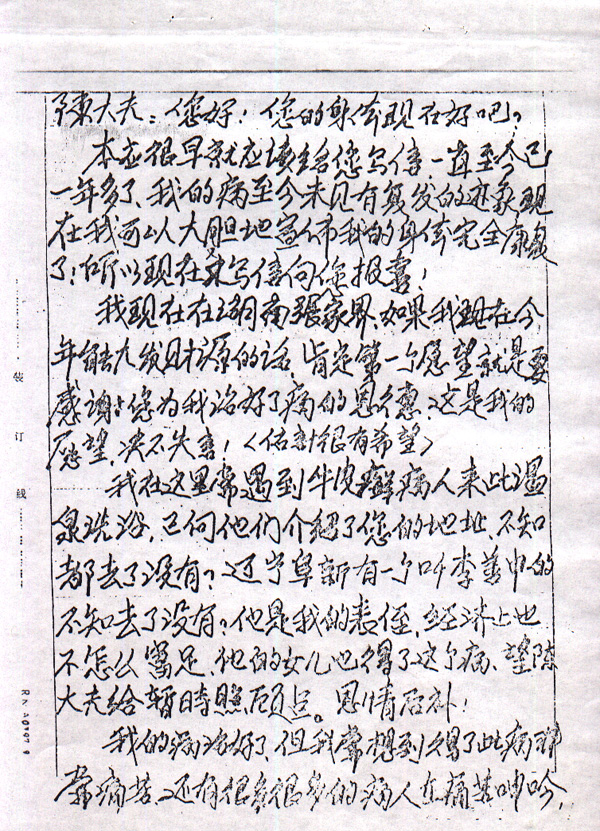 陳大夫：您好！您的身体现在好吧？
本应很早就应该给您写信，一直至今已
一年多了、我的病至今未见有复发的迹象现
在我可以大胆地宣佈我的身体完全康复
了！所以现在才写信向您报喜！
我现在在湖南張家界、如果我现在今
年能大发财源的话，肯定第一个愿望就是要
感谢您为我治好了病的恩惠、这是我的
愿望，决不失言！〈估計很有希望〉
我在这里常遇到牛皮癬病人来此温
泉洗浴，已向他们介绍了您的地址、不知
都去了没有？辽宁阜新有一个叫李善申的
不知去了没有？他是我的表侄，经济上也
不怎么富足、他的女儿也得了这个病、望陳
大夫给暂時照顾点。恩情后补！
我的病治好了、但我常想到得了此病
常痛苦、还有很多很多的病人在痛苦呻吟，
装
订
线